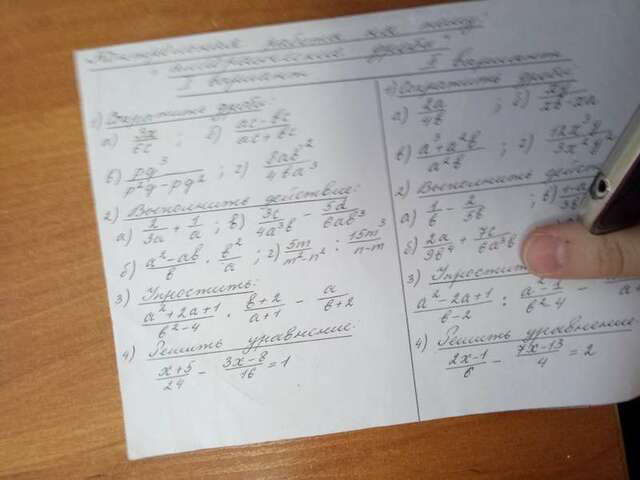 Контрольная работа на тему:
"Алгебраические дроби"
I вариант
1) Сократите дроби:
а) 3x/6c ; б) (ac-bc)/(ac+bc)
в) pq³/(p²q-pq²) ; г) 8ab²/4ba³
2) Выполнить действие:
а) 2/3a + 1/a ; в) 3c/4a³b - 5d/6ab³
б) (a²-ab)/b · b²/a ; г) 5m/(m²-n²) : 15m³/(n-m)
3) Упростить:
(a²+2a+1)/(b²-4) · (b+2)/(a+1) - a/(b+2)
4) Решить уравнение:
(x+5)/24 - (3x-8)/16 = 1
II вариант
1) Сократите дроби
а) 2a/4b ; б)
в) (a³+a²b)/a²b ; г) 12x³y/3x²y
2) Выполнить
а) 1/b - 2/5b ; в)
б) 2a/9b⁴ + 7c/6a³b
3) Упростить:
(a²-2a+1)/(b-2) : (a²-1)/(b²-4) -
4) Решить уравнение
(2x-1)/6 - (7x-13)/4 = 2